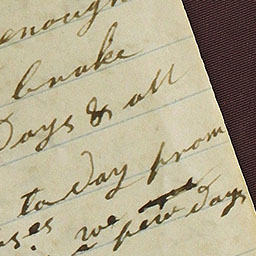 enough
broke
Days & all
to day prom
ses we
few days